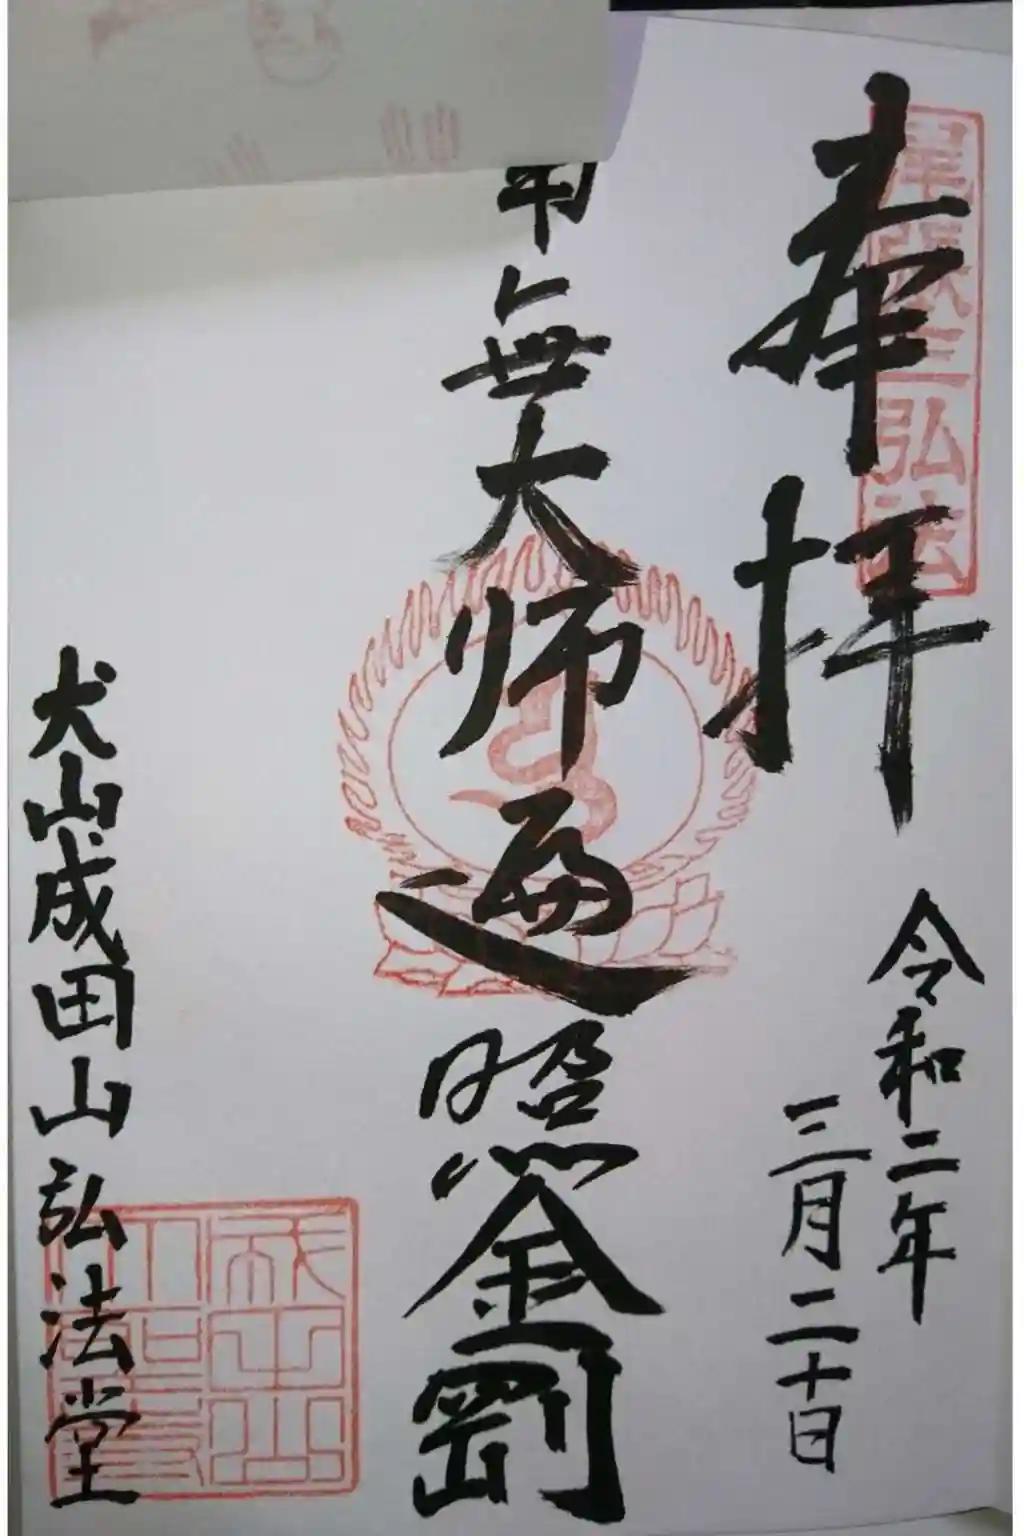 奉拝
尾張三弘法
令和二年
三月二十日
南無大師遍照金剛
犬山成田山弘法堂